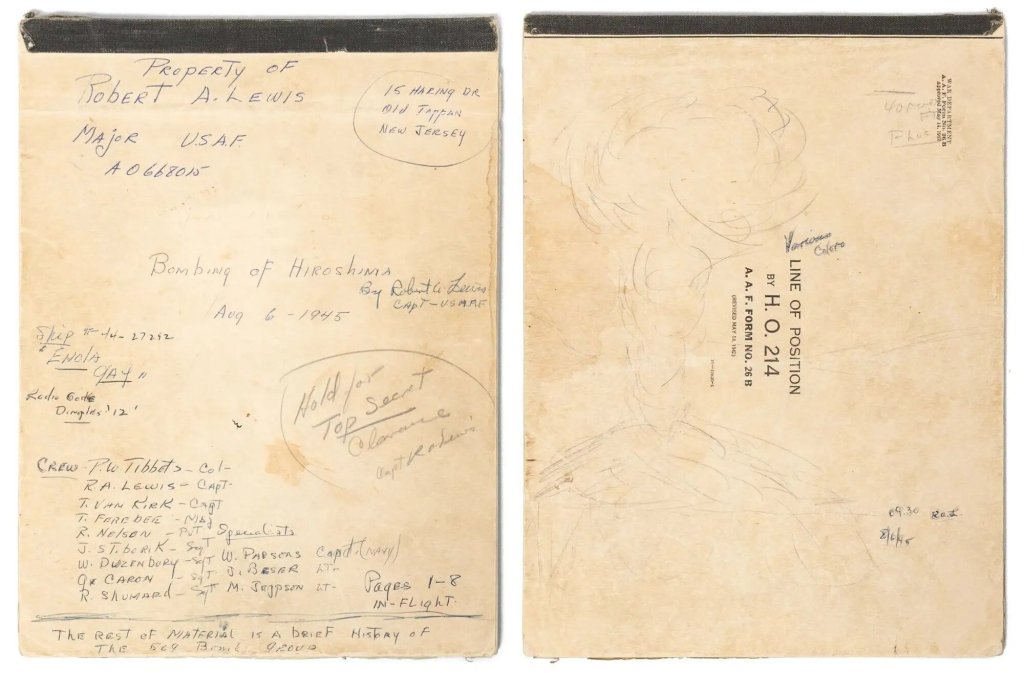 PROPERTY OF
ROBERT A. LEWIS
MAJOR USAF
AO668015
15 HARING DR
OLD TAPPAN
NEW JERSEY
BOMBING OF HIROSHIMA
By Robert A. Lewis
CAPT-USAAF
Aug 6 - 1945
Ship # 44-27292
"ENOLA
GAY"
Radio Code
Dimples '12'
Hold for
TOP Secret
Clearance
Capt RA Lewis
CREW - P.W TIBBETS - COL-
R.A. LEWIS - CAPT-
T. VAN KIRK - CAPT
T. FEREBEE - MAJ
R. NELSON - PVT
J. STIBORIK - SGT
W. DUZENBURY - SGT
G. CARON - SGT
R. SHUMARD - SGT
Specialists
W. PARSONS Capt. (NAVY)
J. BESER LT-
M. JEPPSON LT-
PAGES 1-8
IN-FLIGHT.
THE REST OF MATERIAL IS A BRIEF HISTORY OF
THE 509 BOMB. GROUP
WAR DEPARTMENT
A. A. F. Form No. 26 B
Various
Colors
LINE OF POSITION
BY H. O. 214
A. A. F. FORM NO. 26 B
09:30 R.a.L.
8/6/45